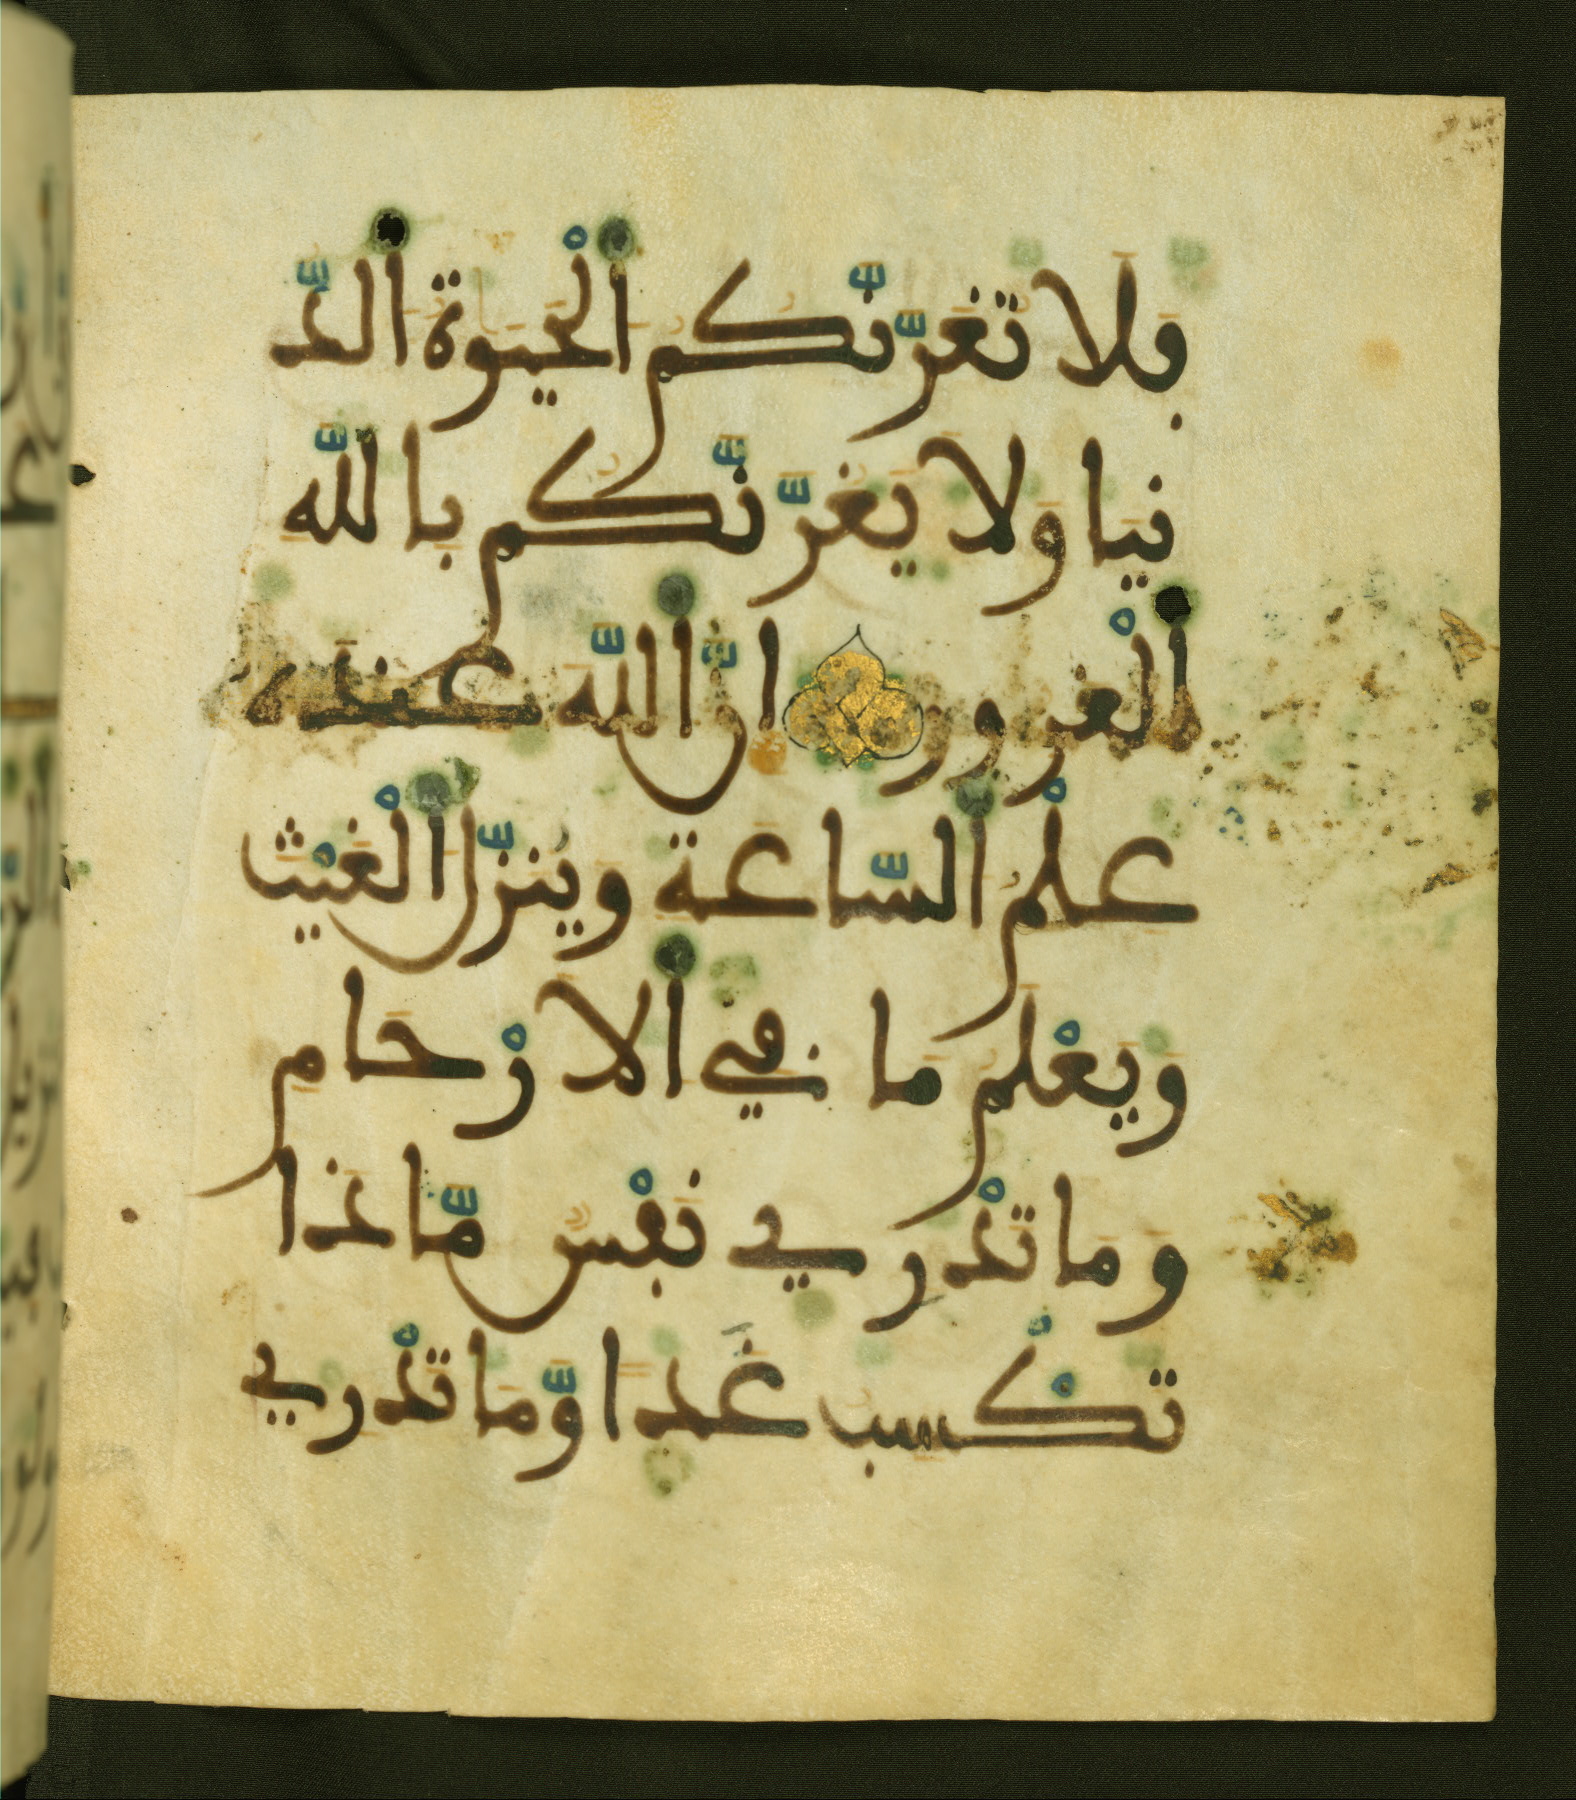 فَلَا تَغُرَّنَّكُمُ الْحَيَوٰةُ الدُّ
نْيَا وَلَا يَغُرَّنَّكُم بِاللَّهِ
الْغَرُورُ إِنَّ اللَّهَ عِندَهُ
عِلْمُ السَّاعَةِ وَيُنَزِّلُ الْغَيْثَ
وَيَعْلَمُ مَا فِي الْأَرْحَامِ
وَمَا تَدْرِي نَفْسٌ مَّاذَا
تَكْسِبُ غَدًا وَّمَا تَدْرِي